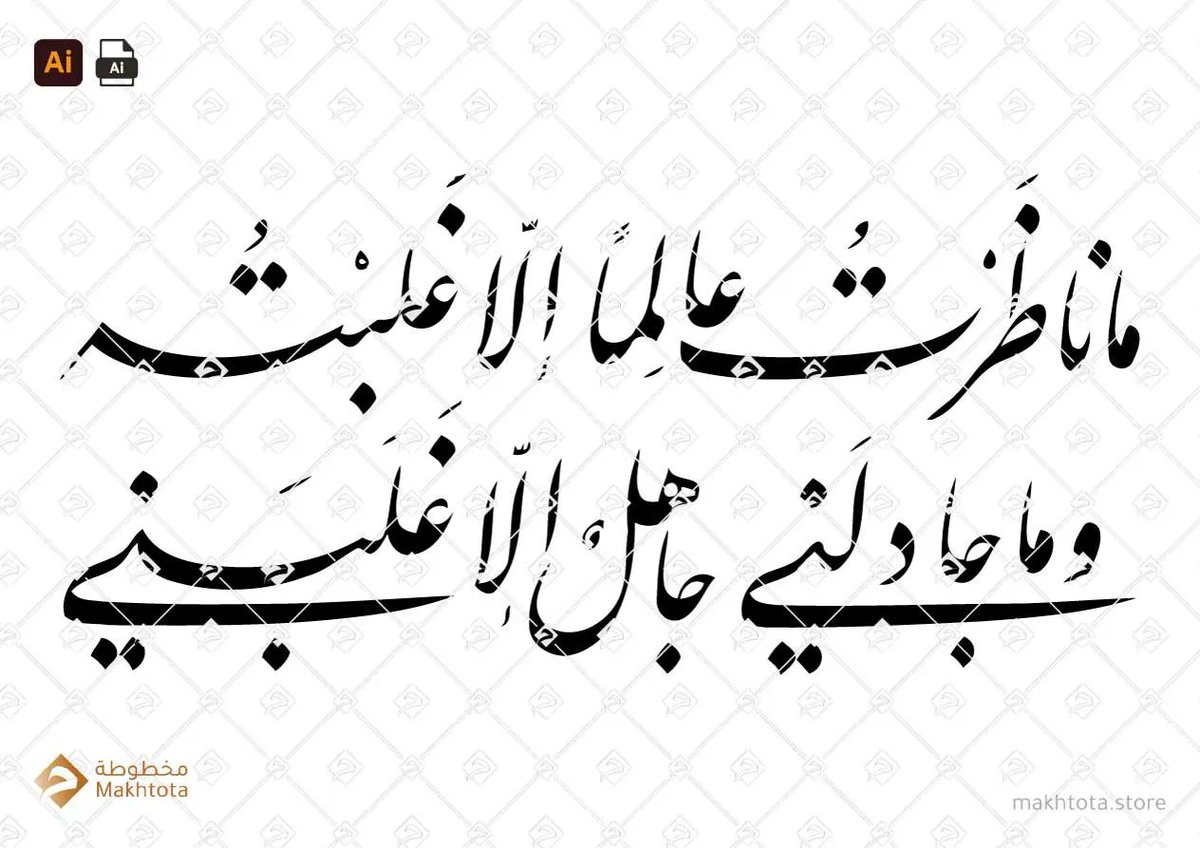 Ai
Ai
ما ناظَرْتُ عالِمًا إلّا غَلبْتُه
وما جادلَني جاهلٌ إلّا غَلَبَني
مخطوطة
Makhtota
makhtota.store